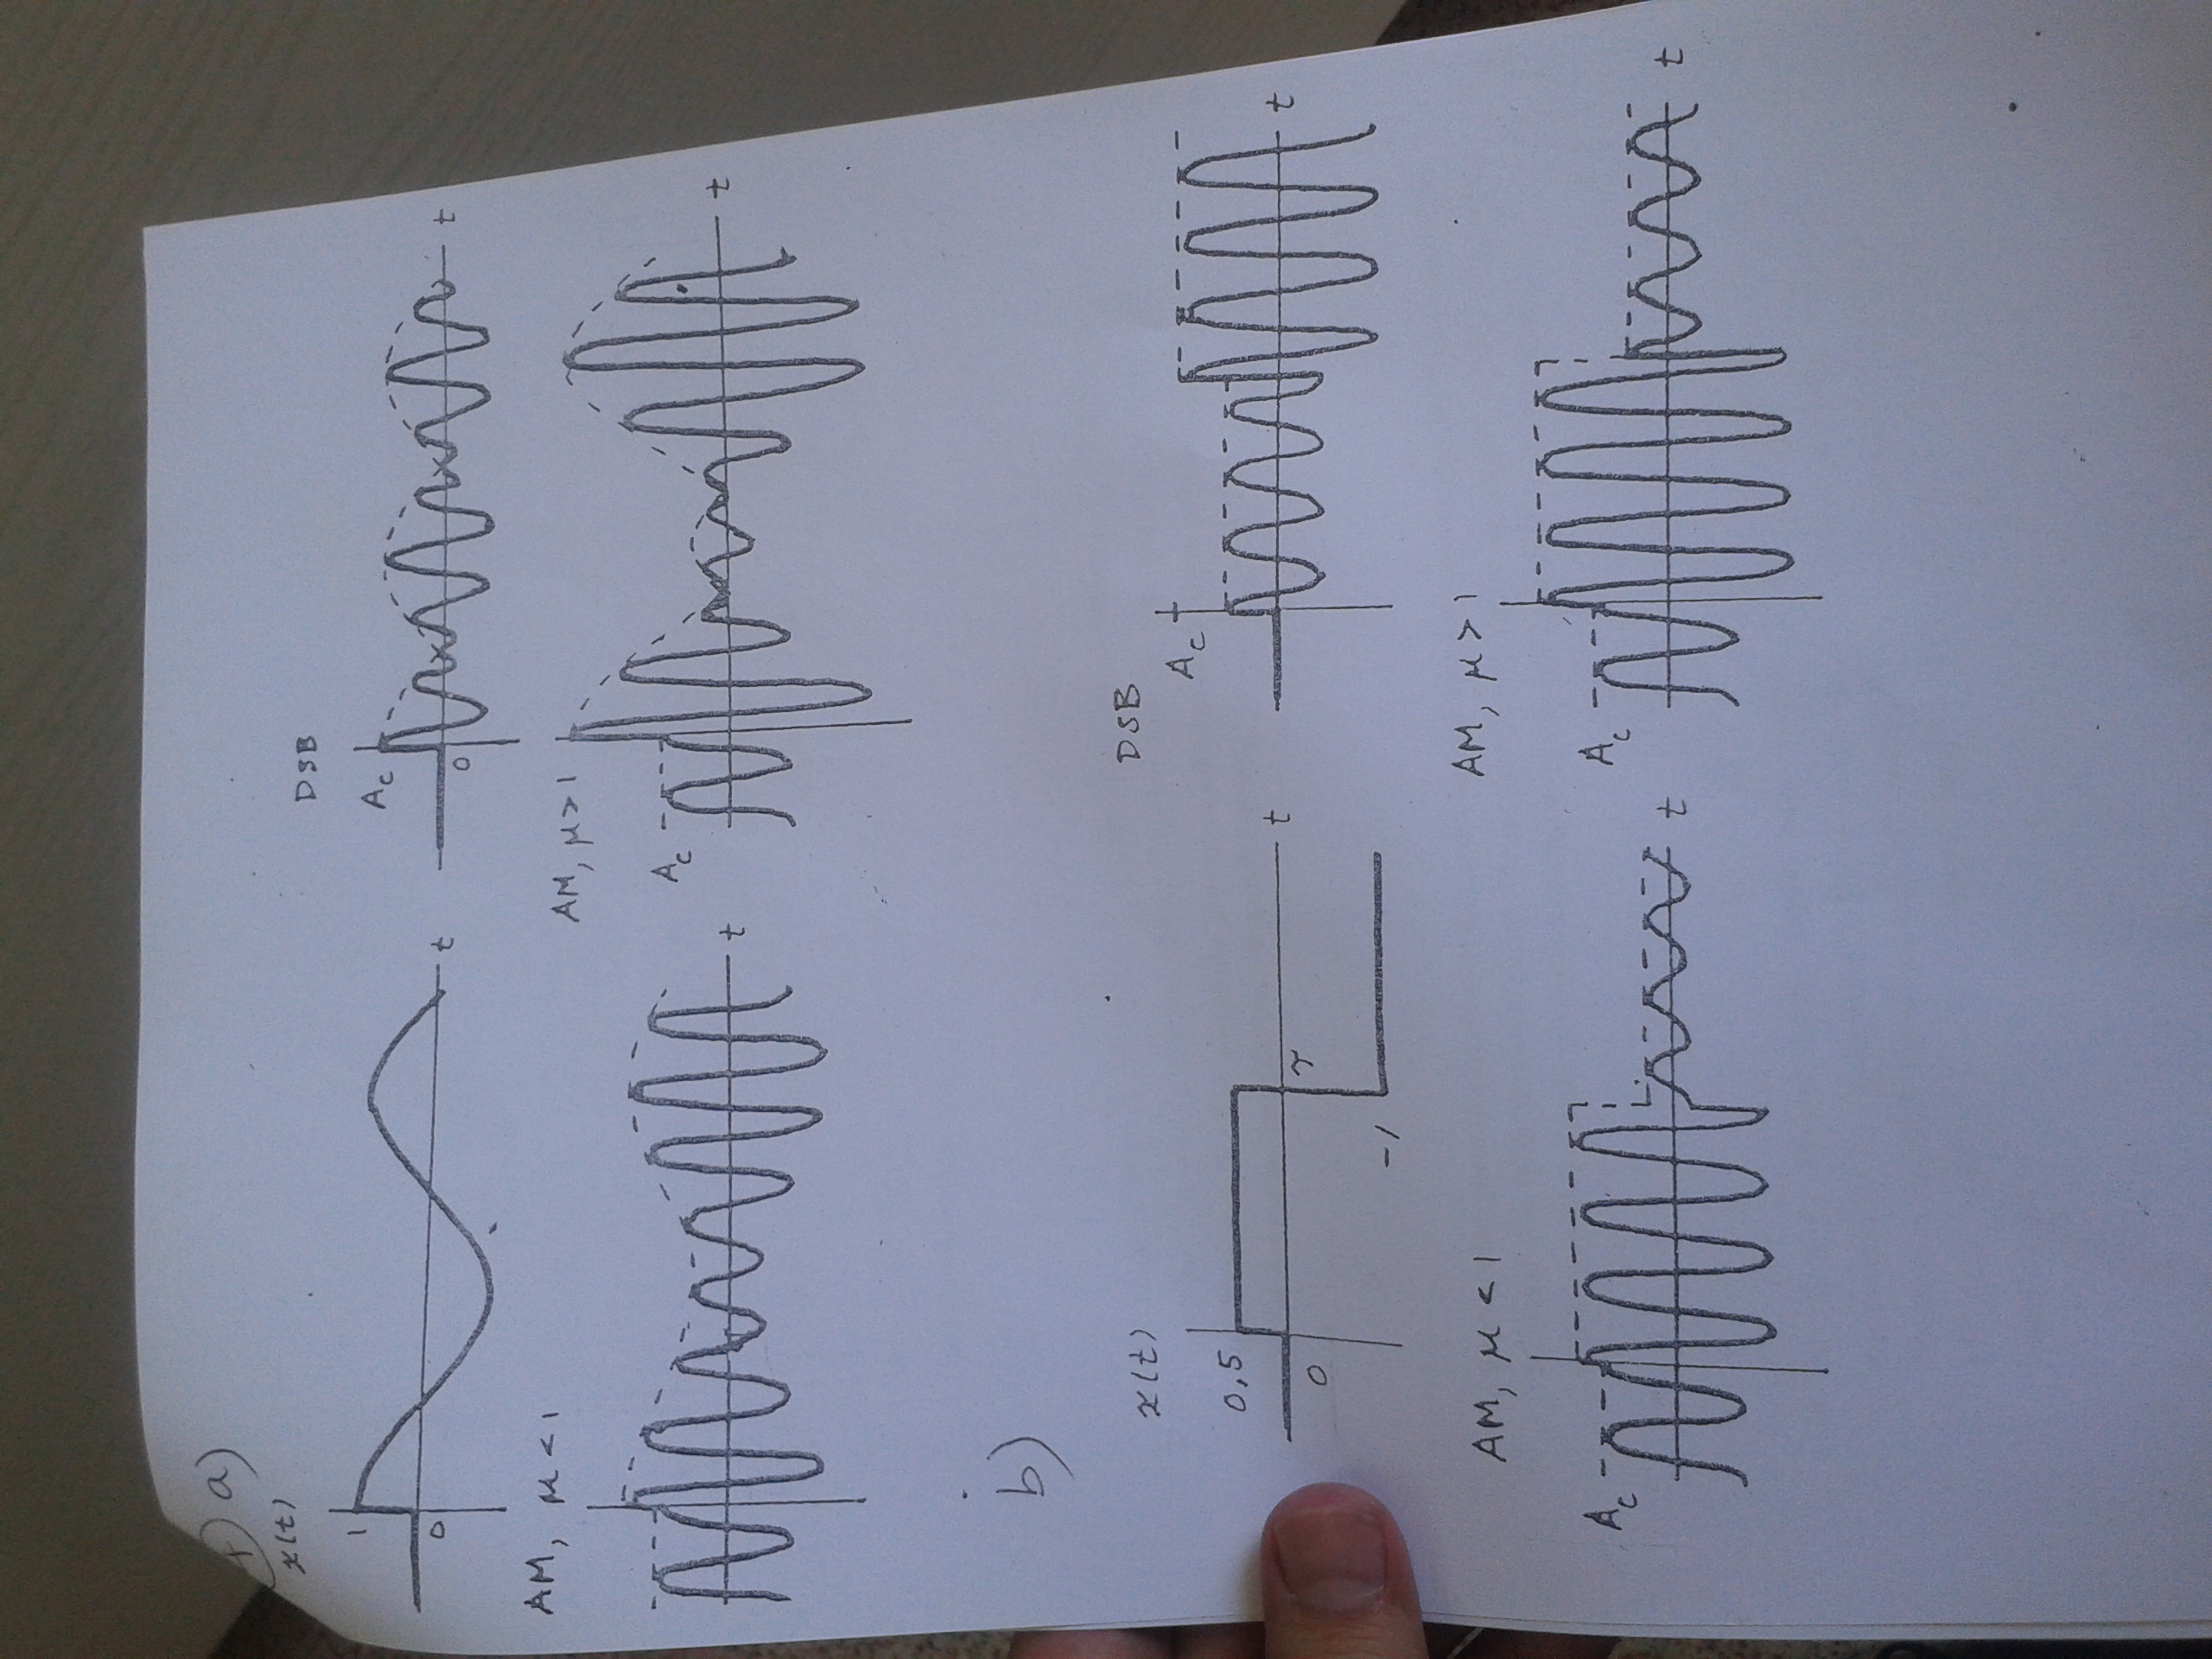 1) a)
x(t)
1
0
t
DSB
A_c
0
t
AM, μ < 1
t
AM, μ > 1
A_c
t
b)
x(t)
0,5
0
τ
-1
t
DSB
A_c
t
AM, μ < 1
A_c
t
AM, μ > 1
A_c
t